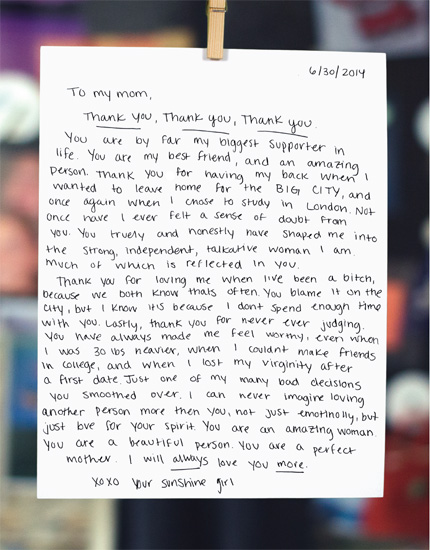 6/30/2014
To my mom,
Thank you, Thank you, Thank you.
You are by far my biggest supporter in
life. You are my best friend, and an amazing
person. Thank you for having my back when I
wanted to leave home for the BIG CITY, and
once again when I chose to study in London. Not
once have I ever felt a sense of doubt from
you. You truely and honestly have shaped me into
the strong, independent, talkative woman I am.
Much of which is reflected in you.
Thank you for loving me when I've been a bitch,
because we both know thats often. You blame it on the
city, but I know its because I dont spend enough time
with you. Lastly, thank you for never ever judging.
You have always made me feel worthy, even when
I was 30 lbs heavier, when I couldnt make friends
in college, and when I lost my virginity after
a first date. Just one of my many bad decisions
you smoothed over. I can never imagine loving
another person more then you, not just emotinolly, but
just love for your spirit. You are an amazing woman.
You are a beautiful person. You are a perfect
mother. I will always love you more.
XoXo Your sunshine girl